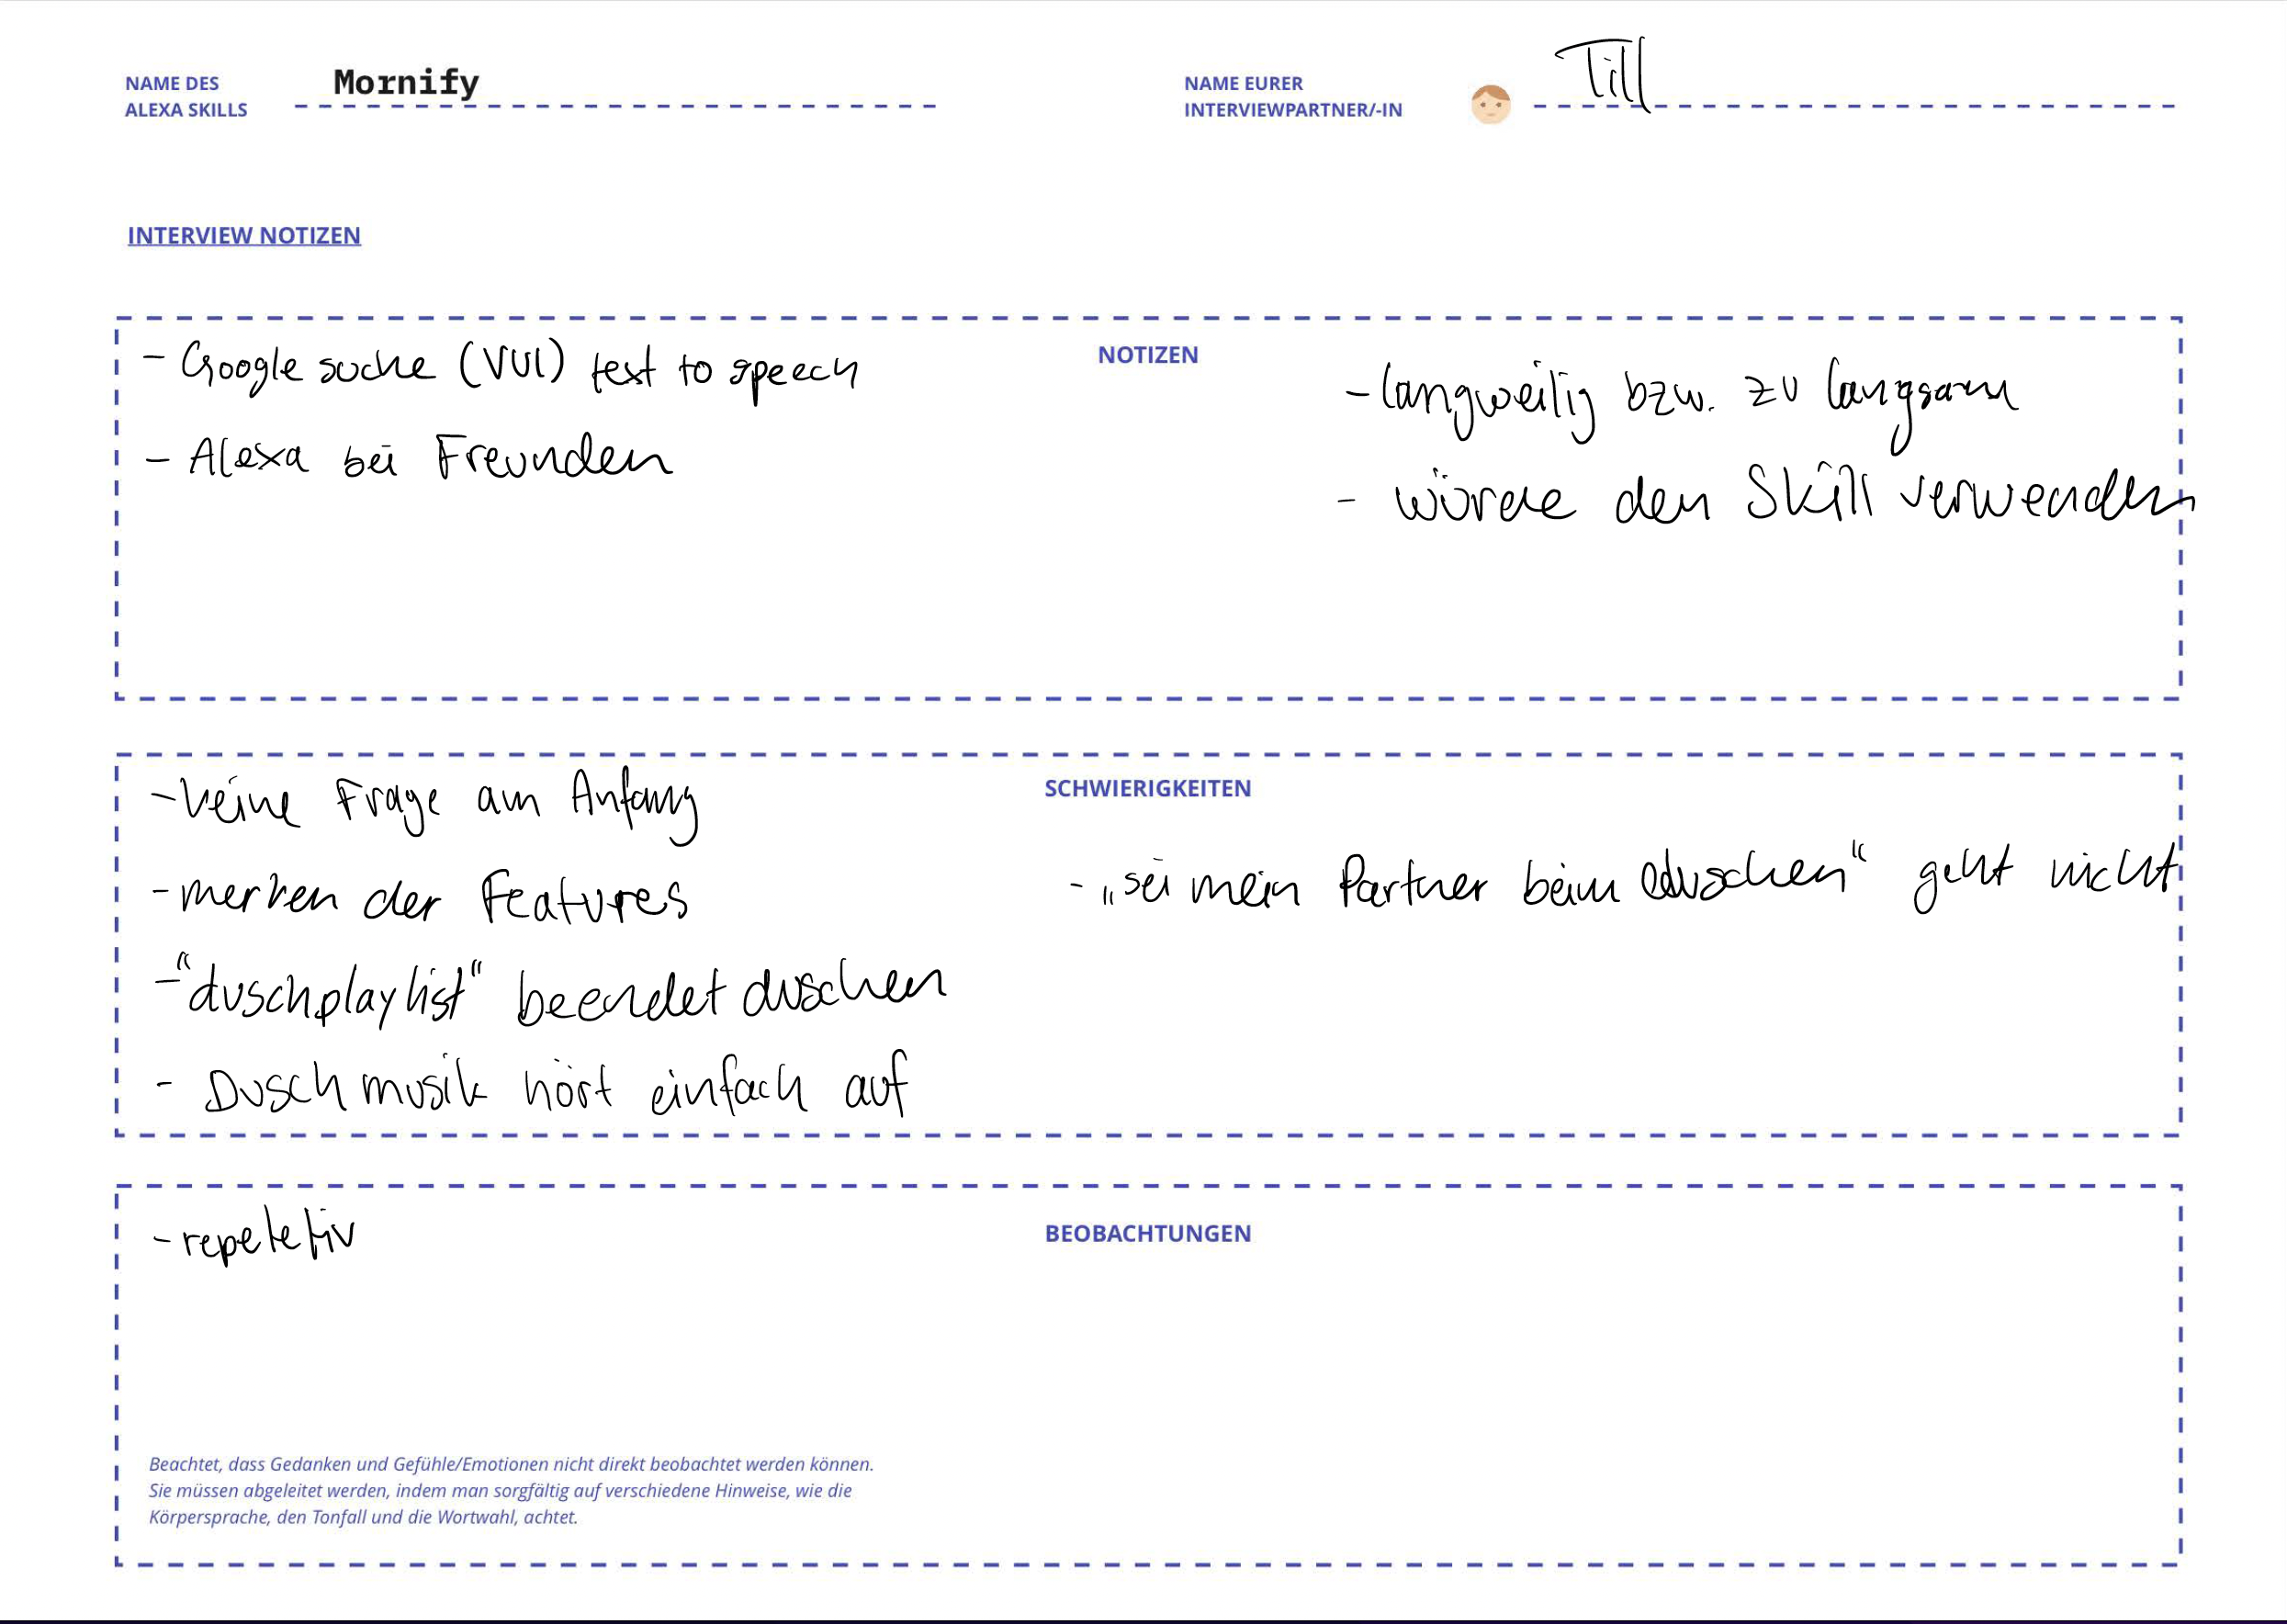 NAME DES
ALEXA SKILLS
Mornify
NAME EURER
INTERVIEWPARTNER/-IN
Till
INTERVIEW NOTIZEN
NOTIZEN
- Google suche (VUI) text to speech
- Alexa bei Freunden
- langweilig bzw. zu langsam
- würde den Skill verwenden
SCHWIERIGKEITEN
- keine Frage am Anfang
- merken der Features
- "duschplaylist" beendet duschen
- Duschmusik hört einfach auf
- „sei mein Partner beim duschen“ geht nicht
BEOBACHTUNGEN
- repetetiv
Beachtet, dass Gedanken und Gefühle/Emotionen nicht direkt beobachtet werden können.
Sie müssen abgeleitet werden, indem man sorgfältig auf verschiedene Hinweise, wie die
Körpersprache, den Tonfall und die Wortwahl, achtet.